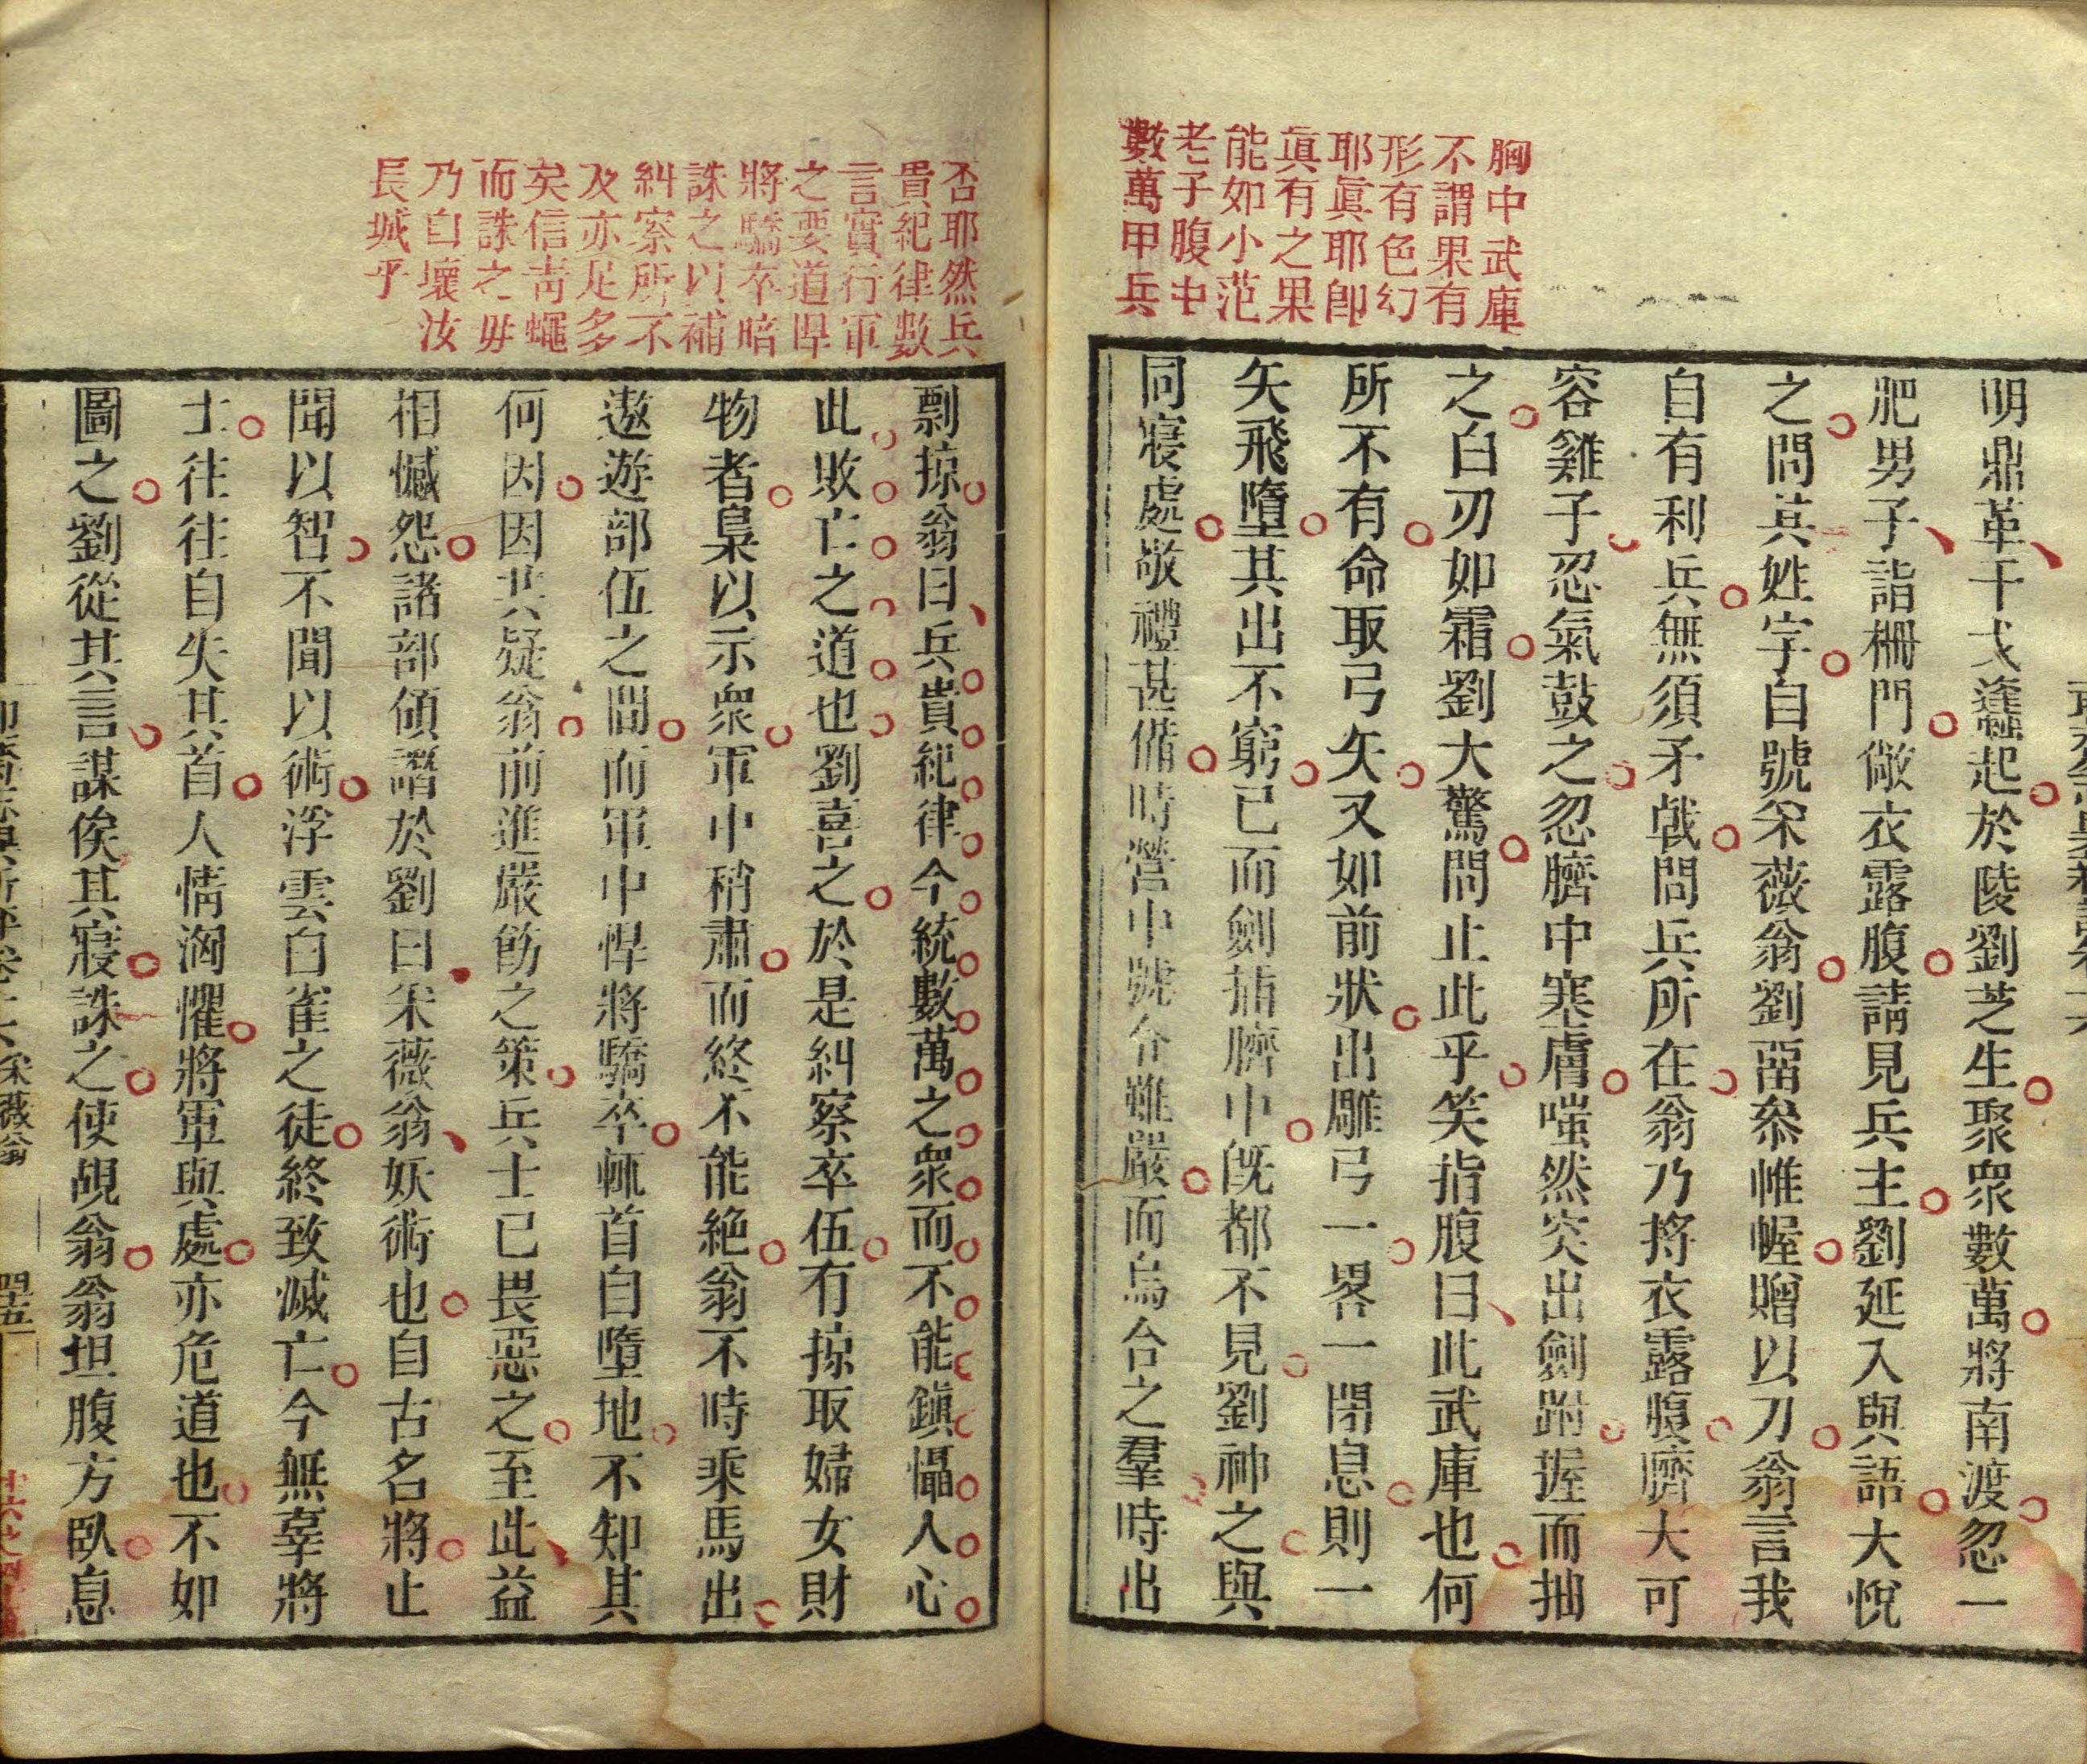 胸中武庫
不謂果有
形有色幻
耶眞耶卽
眞有之果
能如小范
老子腹中
數萬甲兵
明鼎革干戈蠭起於陵劉芝生聚眾數萬將南渡忽一
肥男子詣柵門敞衣露腹請見兵主劉延入與語大悅
之問其姓字自號采薇翁劉畱叅帷幄贈以刀翁言我
自有利兵無須矛戟問兵所在翁乃捋衣露腹臍大可
容雞子忍氣鼓之忽臍中塞膚嗤然突出劍跗握而抽
之白刃如霜劉大驚問止此乎笑指腹曰此武庫也何
所不有命取弓矢又如前狀出雕弓一畧一閉息則一
矢飛墮其出不窮已而劍插臍中旣都不見劉神之與
同寢處敬禮甚備時營中號令雖嚴而烏合之羣時出
否耶然兵
貴紀律數
言實行軍
之要道悍
將驕卒暗
誅之以補
糾察所不
及亦足多
矣信靑蠅
而誅之毋
乃自壞汝
長城乎
剽掠翁曰兵貴紀律今統數萬之眾而不能鎭懾人心
此敗亡之道也劉喜之於是糾察卒伍有掠取婦女財
物者梟以示眾軍中稍肅而終不能絕翁不時乘馬出
遨遊部伍之間而軍中悍將驕卒輒首自墮地不知其
何因因共疑翁前進嚴飭之策兵士已畏惡之至此益
相憾怨諸部領譖於劉曰采薇翁妖術也自古名將止
聞以智不聞以術浮雲白雀之徒終致滅亡今無辜將
士往往自失其首人情洶懼將軍與處亦危道也不如
圖之劉從其言謀俟其寢誅之使覘翁翁坦腹方臥息
采薇翁